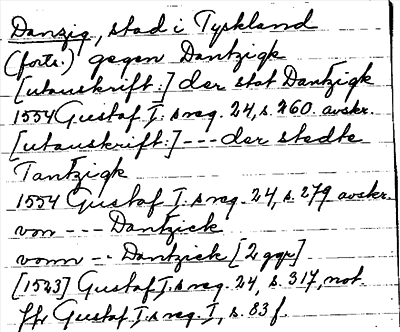 Danzig, stad i Tyskland
(forts.) gegen Dantzigk
[utanskrift:] der stat Dantzigk
1554 Gustaf I:s reg. 24, s. 260. avskr.
[utanskrift:] --- der stedte
Tantzigk
1554 Gustaf I:s reg. 24, s. 279 avskr.
von --- Dantzick
vomn -- Dantzick [2 ggr]
[1523] Gustaf I:s reg. 24, s. 317, not.
jfr Gustaf I:s reg. I, s. 83 f.